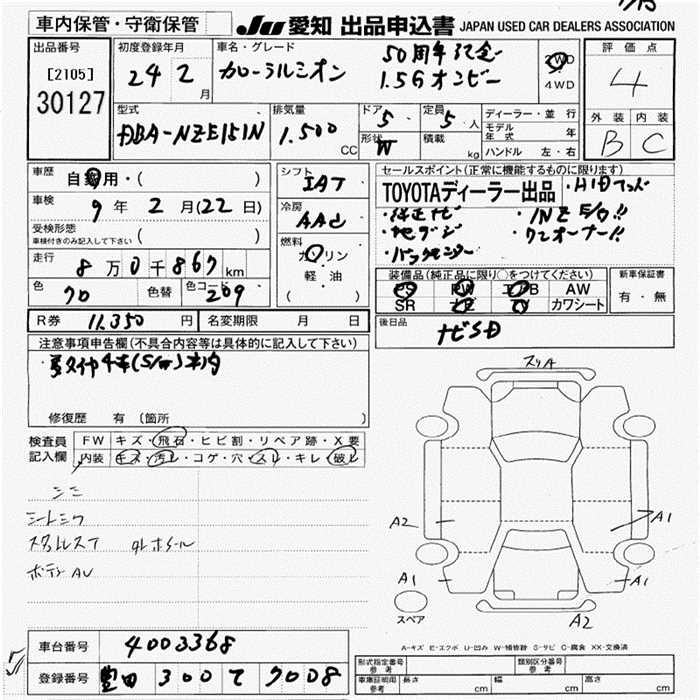 車内保管・守衛保管
JU 愛知 出品申込書 JAPAN USED CAR DEALERS ASSOCIATION
出品番号
[2105]
30127
初度登録年月
24 2月
車名・グレード
カローラルミオン
50周年記念
1.5G オンビー
2WD
4WD
評価点
4
外装 内装
B C
型式
DBA-NZE151N
排気量
1.500 CC
ドア
5
形状
W
定員
5人
積載 kg
ディーラー・並行
モデル年式 年
ハンドル 左・右
車歴 自家用・( )
車検 9年 2月(22日)
受検形態 ( )
車検付きのみ記入して下さい
走行 8万0千867km
色 クロ 色替 色コード 209
シフト
IAT
冷房
AAC
燃料
ガソリン
軽・油
( )
セールスポイント(正常に機能するものに限ります)
TOYOTAディーラー出品 ・HID
・純正ナビ ・1NZ E/G!!
・地デジ ・ワンオーナー!!
・バックモニター
装備品(純正品に限り○をつけてください)
PS PW エアB AW
SR ナビ TV カワシート
新車保証書
有・無
後日品
ナビSD
R券 11.350円 名変期限 月 日
注意事項申告欄(不具合内容等は具体的に記入して下さい)
修復歴 有 〔箇所 〕
検査員記入欄
FW キズ・飛石・ヒビ割・リペア跡・X要
内装 キズ・汚レ・コゲ・穴・スレ・キレ・破レ
シミ
スタッドレスT
ボディ AU
スリA
A2
A1
A1
A1
A2
スペア
A-キズ E-エクボ U-凹み W-補修跡 S-サビ C-腐食 XX-交換済
車台番号 4003368
登録番号 豊田 300 て 7008
形式指定番号 参考
類別区分番号 参考
車庫証明用 参考 長さ cm 幅 cm 高さ cm